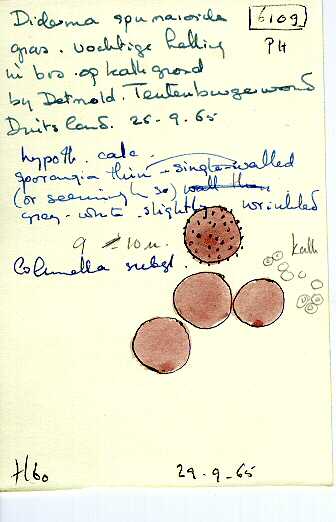 Diderma spumarioides
6109
gras. vochtige helling
PH
in bos op kalkgrond
by Detmold. Teutenburgerwoud
Duitsland. 26-9-65
hypoth. calc.
sporangia thin - single-walled
(or seemingly so) wall thin
grey-white. slightly wrinkled
9 - 10 u.
Kalk
Columella subgl.
H60
29-9-65